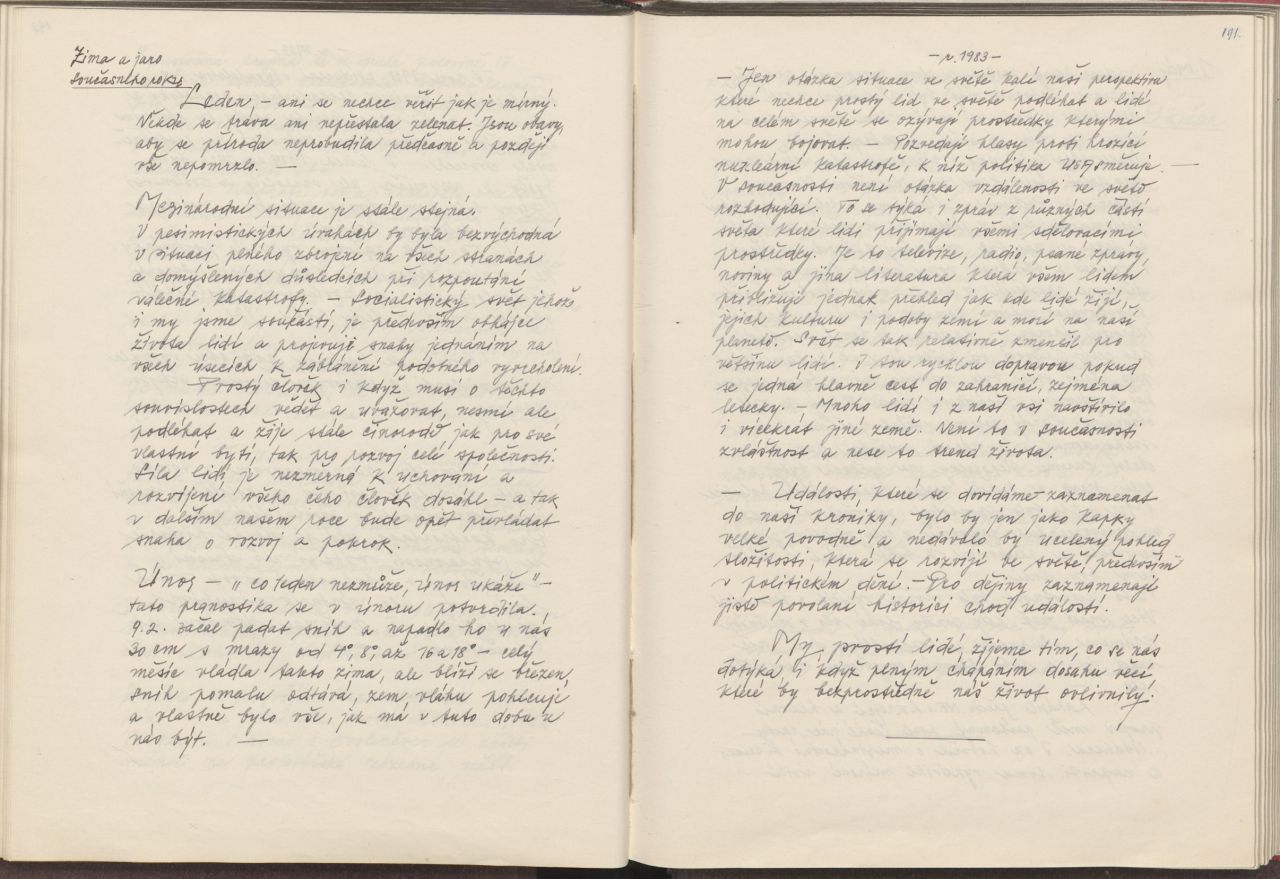 Zima a jaro
současného roku
Leden, - ani se nechce věřit jak je mírný.
Někde se tráva ani nepřestala zelenat. Jsou obavy,
aby se příroda neprobudila předčasně a později
vše nepomrzlo. —
Mezinárodní situace je stále stejná.
V pesimistických úvahách by byla bezvýchodná
v situaci plného zbrojení na všech stranách
a domyšlených důsledcích při rozpoutání
válečné katastrofy. - Socialistický svět jehož
i my jsme součástí, je především obhájce
života lidí a projevuje snahy jednáním na
všech úsecích k zabránění podobného vyvrcholení.
Prostý člověk i když musí o těchto
souvislostech vědět a uvažovat, nesmí ale
podléhat a žije stále činorodě jak pro své
vlastní bytí, tak pro rozvoj celé společnosti.
Síla lidí je nezměrná k uchování a
rozvíjení všeho čeho člověk dosáhl - a tak
v dalším našem roce bude opět převládat
snaha o rozvoj a pokrok.
Únor - "co leden nezmůže, únor ukáže" -
tato pranostika se v únoru potvrdila.
9.2. začal padat sníh a napadlo ho u nás
30 cm s mrazy od 4°, 8°, až 16 a 18° - celý
měsíc vládla takto zima, ale blíží se březen,
sníh pomalu odtává, zem vláhu pohlcuje
a vlastně bylo vše, jak má v tuto dobu u
nás být. —
191.
- r. 1983 -
- Jen otázka situace ve světě kalí naši perspektivu
které nechce prostý lid ve světě podléhat a lidé
na celém světě se ozývají prostředky kterými
mohou bojovat. - Pozvedají hlasy proti hrozící
nukleární katastrofě, k níž politika USA směřuje. —
V současnosti není otázka vzdálenosti ve světě
rozhodující. To se týká i zpráv z různých částí
světa které lidi přijímají všemi sdělovacími
prostředky. Je to televize, radio, psané zprávy,
noviny a jiná literatura která všem lidem
přibližuje jednak přehled jak kde lidé žijí,
jejich kulturu i podoby zemí a moří na naší
planetě. Svět se tak relativně zmenšil pro
většinu lidí. I tou rychlou dopravou pokud
se jedná hlavně cest do zahraničí, zejména
letecky. - Mnoho lidí i z naší vsi navštívilo
i víckrát jiné země. Není to v současnosti
zvláštnost a nese to trend života.
- Události, které se dovídáme zaznamenat
do naší kroniky, - bylo by jen jako kapky
velké povodně a nedávalo by ucelený pohled
složitosti, která se rozvíjí ve světě, především
v politickém dění. - Pro dějiny zaznamenají
jistě povolaní historici chod událostí.
My, prostí lidé, žijeme tím, co se nás
dotýká, i když plným chápáním dosahu věcí
které by bezprostředně náš život ovlivnily.